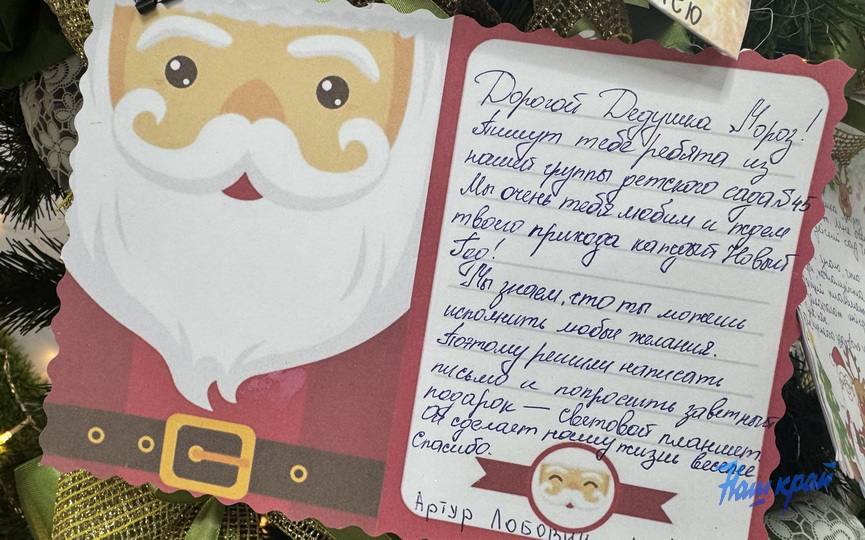 Дорогой Дедушка Мороз!
Пишут тебе ребята из
нашей группы детского сада №45
Мы очень тебя любим и ждем
твоего прихода каждый Новый
Год!
Мы знаем, что ты можешь
исполнить любые желания.
Поэтому решили написать
письмо и попросить заветный
подарок — световой планшет.
Он сделает нашу жизнь веселее
Спасибо.
Артур Лобович
Наш край